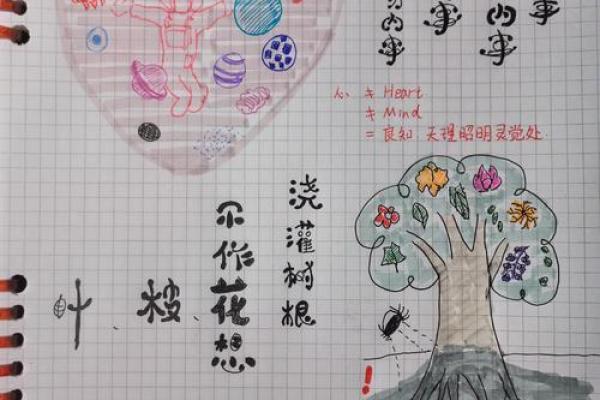 事
内事
事
内事
心 ≠ Heart
≠ Mind
= 良知 天理昭明灵觉处.
浇灌树根
不作花想
、枝
、叶
!